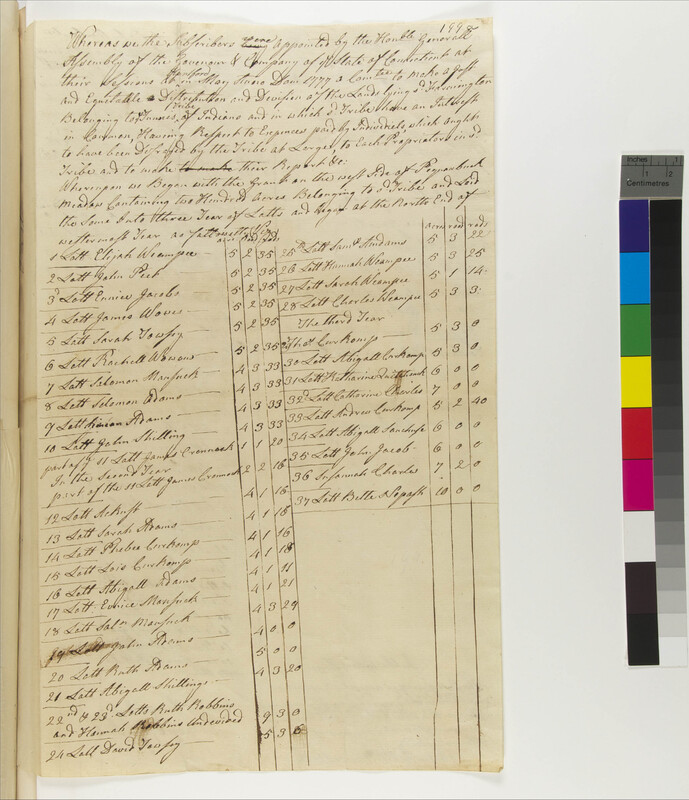 199 8
Whereas we the Subscribers appointed by the Honble Generall
Assembly of the Govenour & Company of ye State of Connecticut at
their Sessions at Hartford in May Anno Dom 1777 a Comtee to make a Just
and Equitable Distribution and Division of the Lands lying in Farmington
Belonging to ye Tunxis Tribe of Indians and in which sd Tribe have an Interest
in Common, Having Respect to Expences paid by Individuals, which ought
to have been Discharged by the Tribe at Large, to Each Proprietor in sd
Tribe and to make to make their Report &c:
Whereupon we Began with the Grant on the west side of
Meadow Containing two Hundred Acres Belonging to sd Tribe and Laid
the Same Into three Tear of Lotts and Began at the North End of
westermost Tear as followeth Viz
acr rod rds
1 Lott Elijah Weampee 5 2 35
2 Lott John Peek 5 2 35
3d Lott Eunice Jacobs 5 2 35
4 Lott James Wowes 5 2 35
5 Lott Sarah Towsey 5 2 35
6 Lott Rachell Wowous 5 2 35
7 Lott Solomon Mausuck 4 3 33
8 Lott Solomon Adams 4 3 33
9 Lott Adams 4 3 33
10 Lott John Shilling 4 3 33
part of ye 11 Lott James Cronnack 1 1 20
In the Second Tear
part of the 11 Lott James Cronnack 2 2 16
12 Lott 4 1 16
13 Lott Sarah Adams 4 1 18
14 Lott Phebee Curkomp 4 1 16
15 Lott Lois Curkomp 4 1 18
16 Lott Abigall Adams 4 1 11
17 Lott Eunice Mausuck 4 1 21
18 Lott Solon Mausuck 4 3 29
19 Lott John Adams 4 0 0
20 Lott Ruth Adams 5 0 0
21 Lott Abigall Shillings 4 3 20
22nd & 23d Lotts Ruth Robbins
and Hannah Robbins Undevided 9 3 0
24 Lott David Towsey 5 3 6
acrs rod rods
25th Lott Saml Andams 5 3 22
26 Lott Hannah Weampee 5 3 25
27 Lott Sarah Weampee 5 1 14
28 Lott Charles Weampee 5 3 3
The third Tear
29 Curkomp 5 3 0
30 Lott Abigall Curkomp 5 3 0
31 Lott Katharine 6 0 0
32d Lott Catherine Charles 7 0 0
33 Lott Andrew Curkomp 5 2 40
34 Lott Abigall 6 0 0
35 Lott John Jacob 6 0 0
36 Susannah Charls 7 2 0
37 Lott Bette 10 0 0